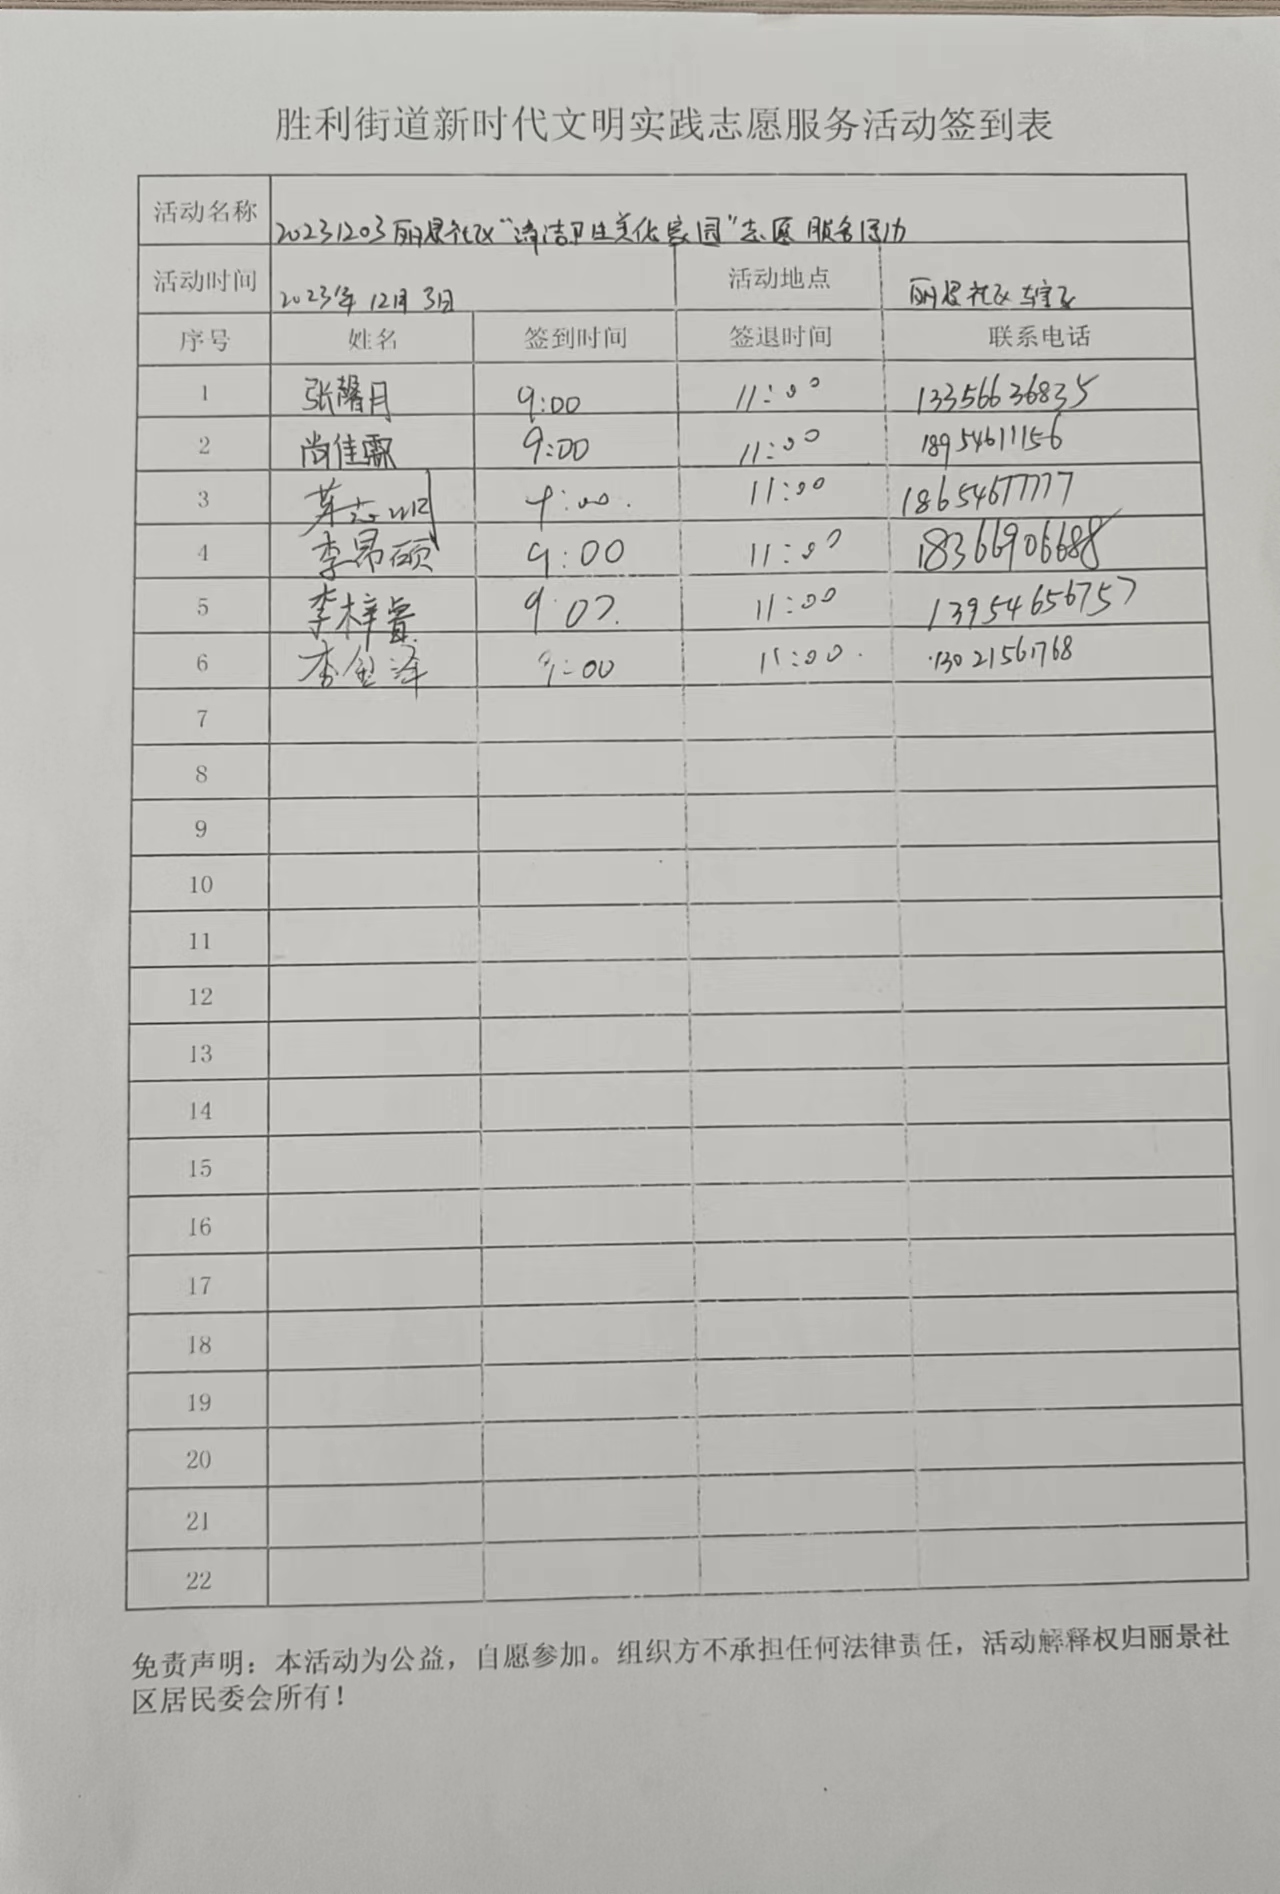 胜利街道新时代文明实践志愿服务活动签到表
活动名称 20231203丽景社区“清洁卫生美化家园”志愿服务活动
活动时间 2023年12月3日 活动地点 丽景社区辖区
序号 姓名 签到时间 签退时间 联系电话
1 张馨月 9:00 11:00 13356636835
2 尚佳霖 9:00 11:00 18954611156
3 志明 9:00. 11:00 18654677777
4 李昂硕 9:00 11:00 18366906688
5 李梓睿 9:07. 11:00 13954656757
6 李金泽 9:00 11:00. 13021561768
7
8
9
10
11
12
13
14
15
16
17
18
19
20
21
22
免责声明：本活动为公益，自愿参加。组织方不承担任何法律责任，活动解释权归丽景社
区居民委会所有！